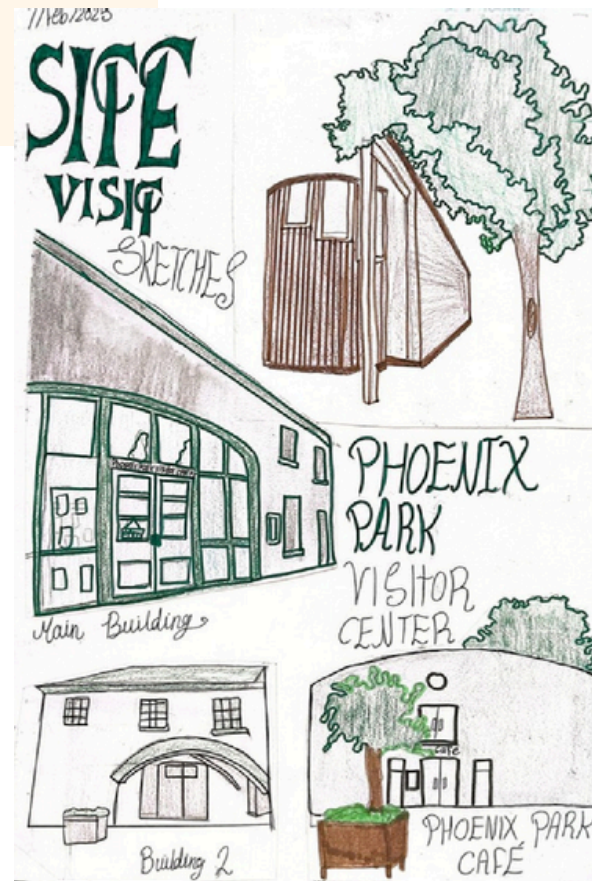 SITE
VISIT
SKETCHES
PHOENIX
PARK
VISITOR
CENTER
Main Building
Café
Building 2
PHOENIX PARK
CAFÉ